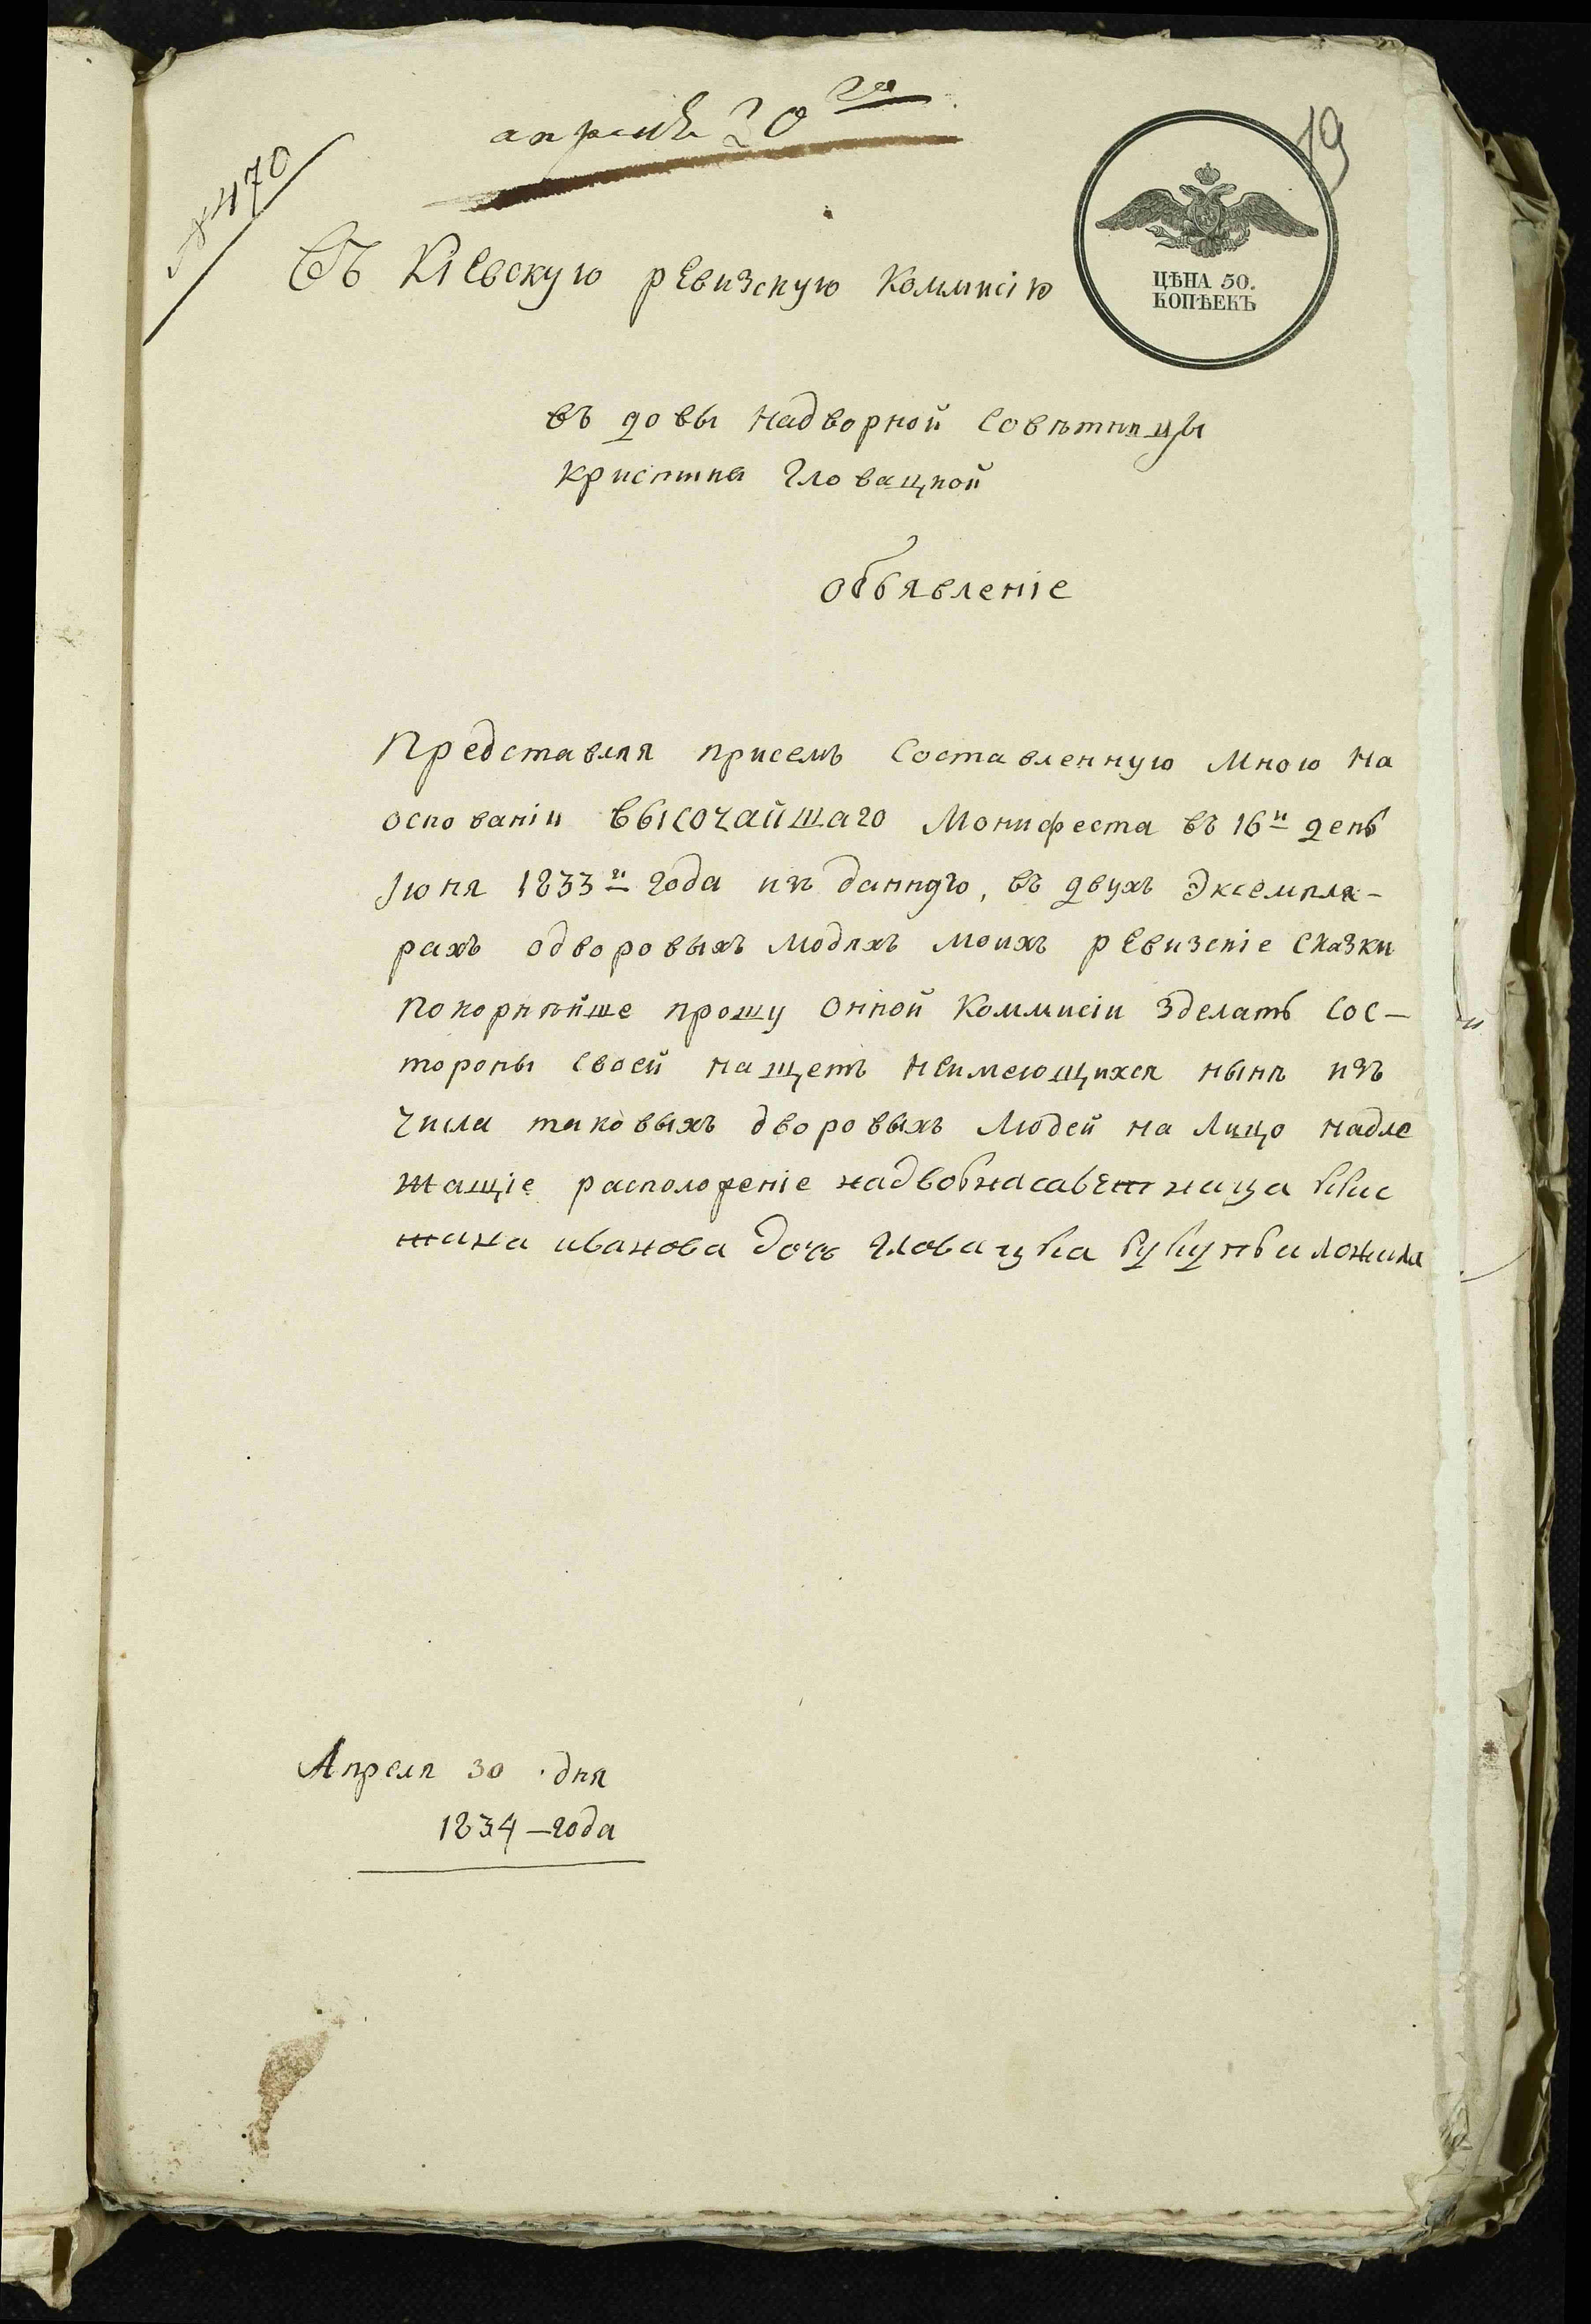 апреля 30го
№ 470
19
ЦѢНА 50.
КОПѢЕКЪ
Въ Кіевскую ревизскую Коммисію
въ довы Надворной Совѣтницы
Кристины Гловацкой
Объявленіе
Представляя присемъ Составленную Мною на
основаніи Высочайшаго Монифеста въ 16й день
Іюня 1833го года изъ даннаго, въ двухъ Экземпля-
рахъ одворовыхъ людяхъ моихъ ревизскіе Сказки
Покорнѣйше прошу Онной Коммисіи Зделать Сос-
тороны своей на щетъ Неимеющихся нынѣ изъ
числа таковыхъ дворовыхъ Людей на Лицо надле
жащіе расположеніе надворнасаветница Крис
тина иванова дочь Гловацка руку приложила
Апреля 30 дня
1834 - года